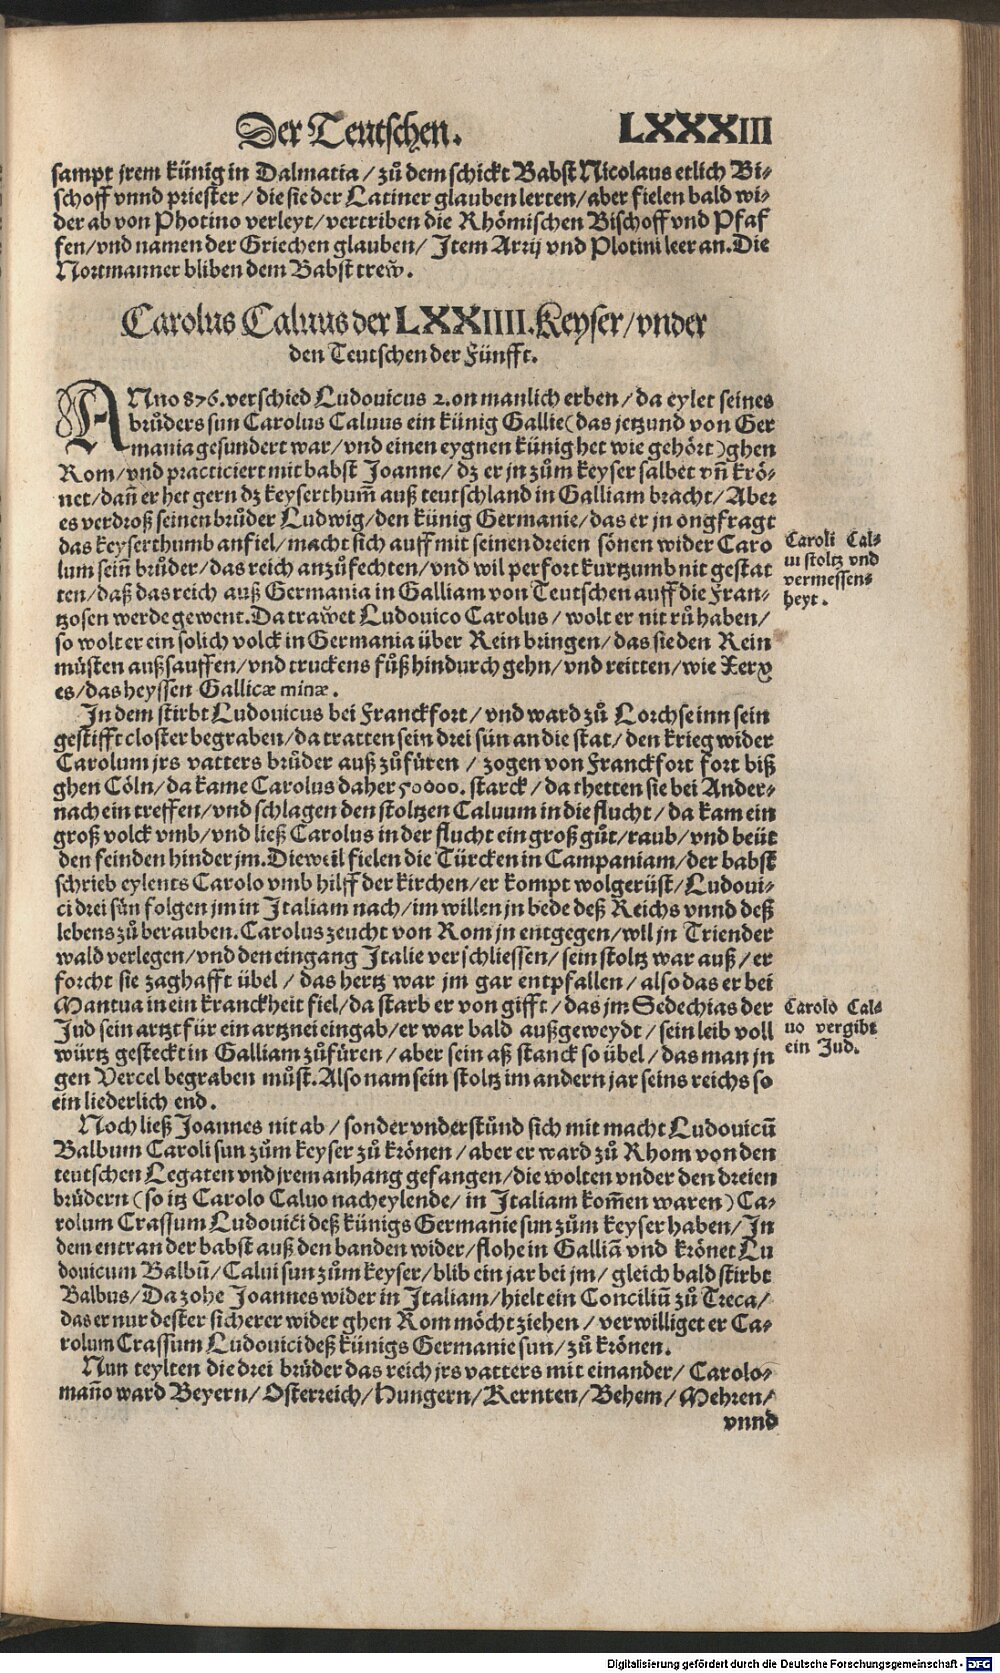 Der Teutschen. LXXXIII
sampt jrem künig in Dalmatia / zů dem schickt Babst Nicolaus etlich Bi⸗
schoff vnnd priester / die sie der Latiner glauben lerten / aber fielen bald wi⸗
der ab von Photino verleyt / vertriben die Rhömischen Bischoff vnd Pfaf
fen / vnd namen der Griechen glauben / Item Arrij vnd Plotini leer an. Die
Nortmanner bliben dem Babst trew̌.
Carolus Caluus der LXXIIII. Keyser / vnder
den Teutschen der Fünfft.
ANno 876. verschied Ludouicus 2. on manlich erben / da eylet seines
brůders sun Carolus Caluus ein künig Gallie (das jetzund von Ger
mania gesundert war / vnd einen eygnen künig het wie gehört) ghen
Rom / vnd practiciert mit babst Joanne / dz er jn zům keyser salbet vñ krö⸗
net / dañ er het gern dz keyserthum̃ auß teutschland in Galliam bracht / Aber
es verdroß seinen brůder Ludwig / den künig Germanie / das er jn ongfragt
das keyserthumb anfiel / macht sich auff mit seinen dreien sönen wider Caro
lum sein̄ brůder / das reich anzůfechten / vnd wil perfort kurtzumb nit gestat
ten / daß das reich auß Germania in Galliam von Teutschen auff die Fran⸗
tzosen werde gewent. Da traw̌et Ludouico Carolus / wolt er nit rů haben /
so wolt er ein solich volck in Germania über Rein bringen / das sie den Rein
müsten außsauffen / vnd truckens fůß hindurch gehn / vnd reitten / wie Xerx
es / das heyssen Gallicæ minæ.
In dem stirbt Ludouicus bei Franckfort / vnd ward zů Lorch seinn sein
gestifft closter begraben / da tratten sein drei sün an die stat / den krieg wider
Carolum jrs vatters brůder auß zůfüren / zogen von Franckfort fort biß
ghen Cöln / da kame Carolus daher 50000. starck / da thetten sie bei Ander⸗
nach ein treffen / vnd schlagen den stoltzen Caluum in die flucht / da kam ein
groß volck vmb / vnd ließ Carolus in der flucht ein groß gůt / raub / vnd beüt
den feinden hinder jm. Dieweil fielen die Türcken in Campaniam / der babst
schrieb eylents Carolo vmb hilff der kirchen / er kompt wolgerüst / Ludoui⸗
ci drei sün folgen jm in Italiam nach / im willen jn bede deß Reichs vnnd deß
lebens zů berauben. Carolus zeucht von Rom jn entgegen / wil jn Triender
wald verlegen / vnd den eingang Italie verschliessen / sein stoltz war auß / er
forcht sie zaghafft übel / das hertz war jm gar entpfallen / also das er bei
Mantua in ein kranckheit fiel / da starb er von gifft / das jm Sedechias der
Jud sein artzt für ein artznei eingab / er war bald außgeweydt / sein leib voll
würtz gesteckt in Galliam zůfüren / aber sein aß stanck so übel / das man jn
gen Vercel begraben můst. Also nam sein stoltz im andern jar seins reichs so
ein liederlich end.
Noch ließ Joannes nit ab / sonder vnderstůnd sich mit macht Ludouicū
Balbum Caroli sun zům keyser zů krönen / aber er ward zů Rhom von den
teutschen Legaten vnd jrem anhang gefangen / die wolten vnder den dreien
brüdern (so itz Carolo Caluo nacheylende / in Italiam kom̃en waren) Ca⸗
rolum Crassum Ludouici deß künigs Germanie sun zům keyser haben / In
dem entran der babst auß den banden wider / flohe in Galliā vnd krönet Lu
douicum Balbū / Calui sun zům keyser / blib ein jar bei jm / gleich bald stirbt
Balbus / Da zohe Joannes wider in Italiam / hielt ein Conciliū zů Treca /
das er nur dester sicherer wider ghen Rom möcht ziehen / verwilliget er Ca⸗
rolum Crassum Ludouici deß künigs Germanie sun / zů krönen.
Nun teylten die drei brüder das reich jrs vatters mit einander / Carolo⸗
mañо ward Beyern / Osterreich / Hungern / Kernten / Behem / Mehren /
vnnd
Caroli Cal⸗
ui stoltz vnd
vermessen⸗
heyt.
Carolo Cal⸗
uo vergibt
ein Jud.
Digitalisierung gefördert durch die Deutsche Forschungsgemeinschaft - DFG